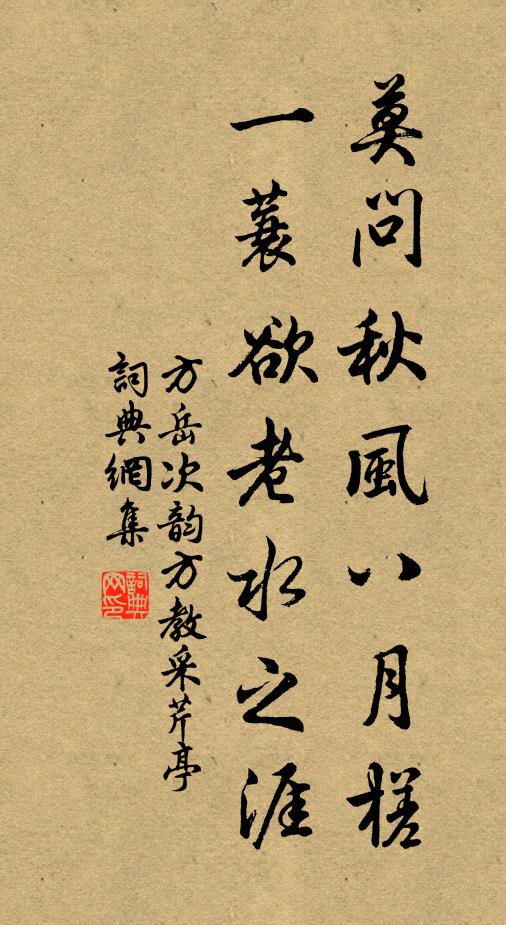 莫問秋風八月槎
一蓑欲老水之涯
方岳次韵方教采芹亭
詞典網集
詞典網印